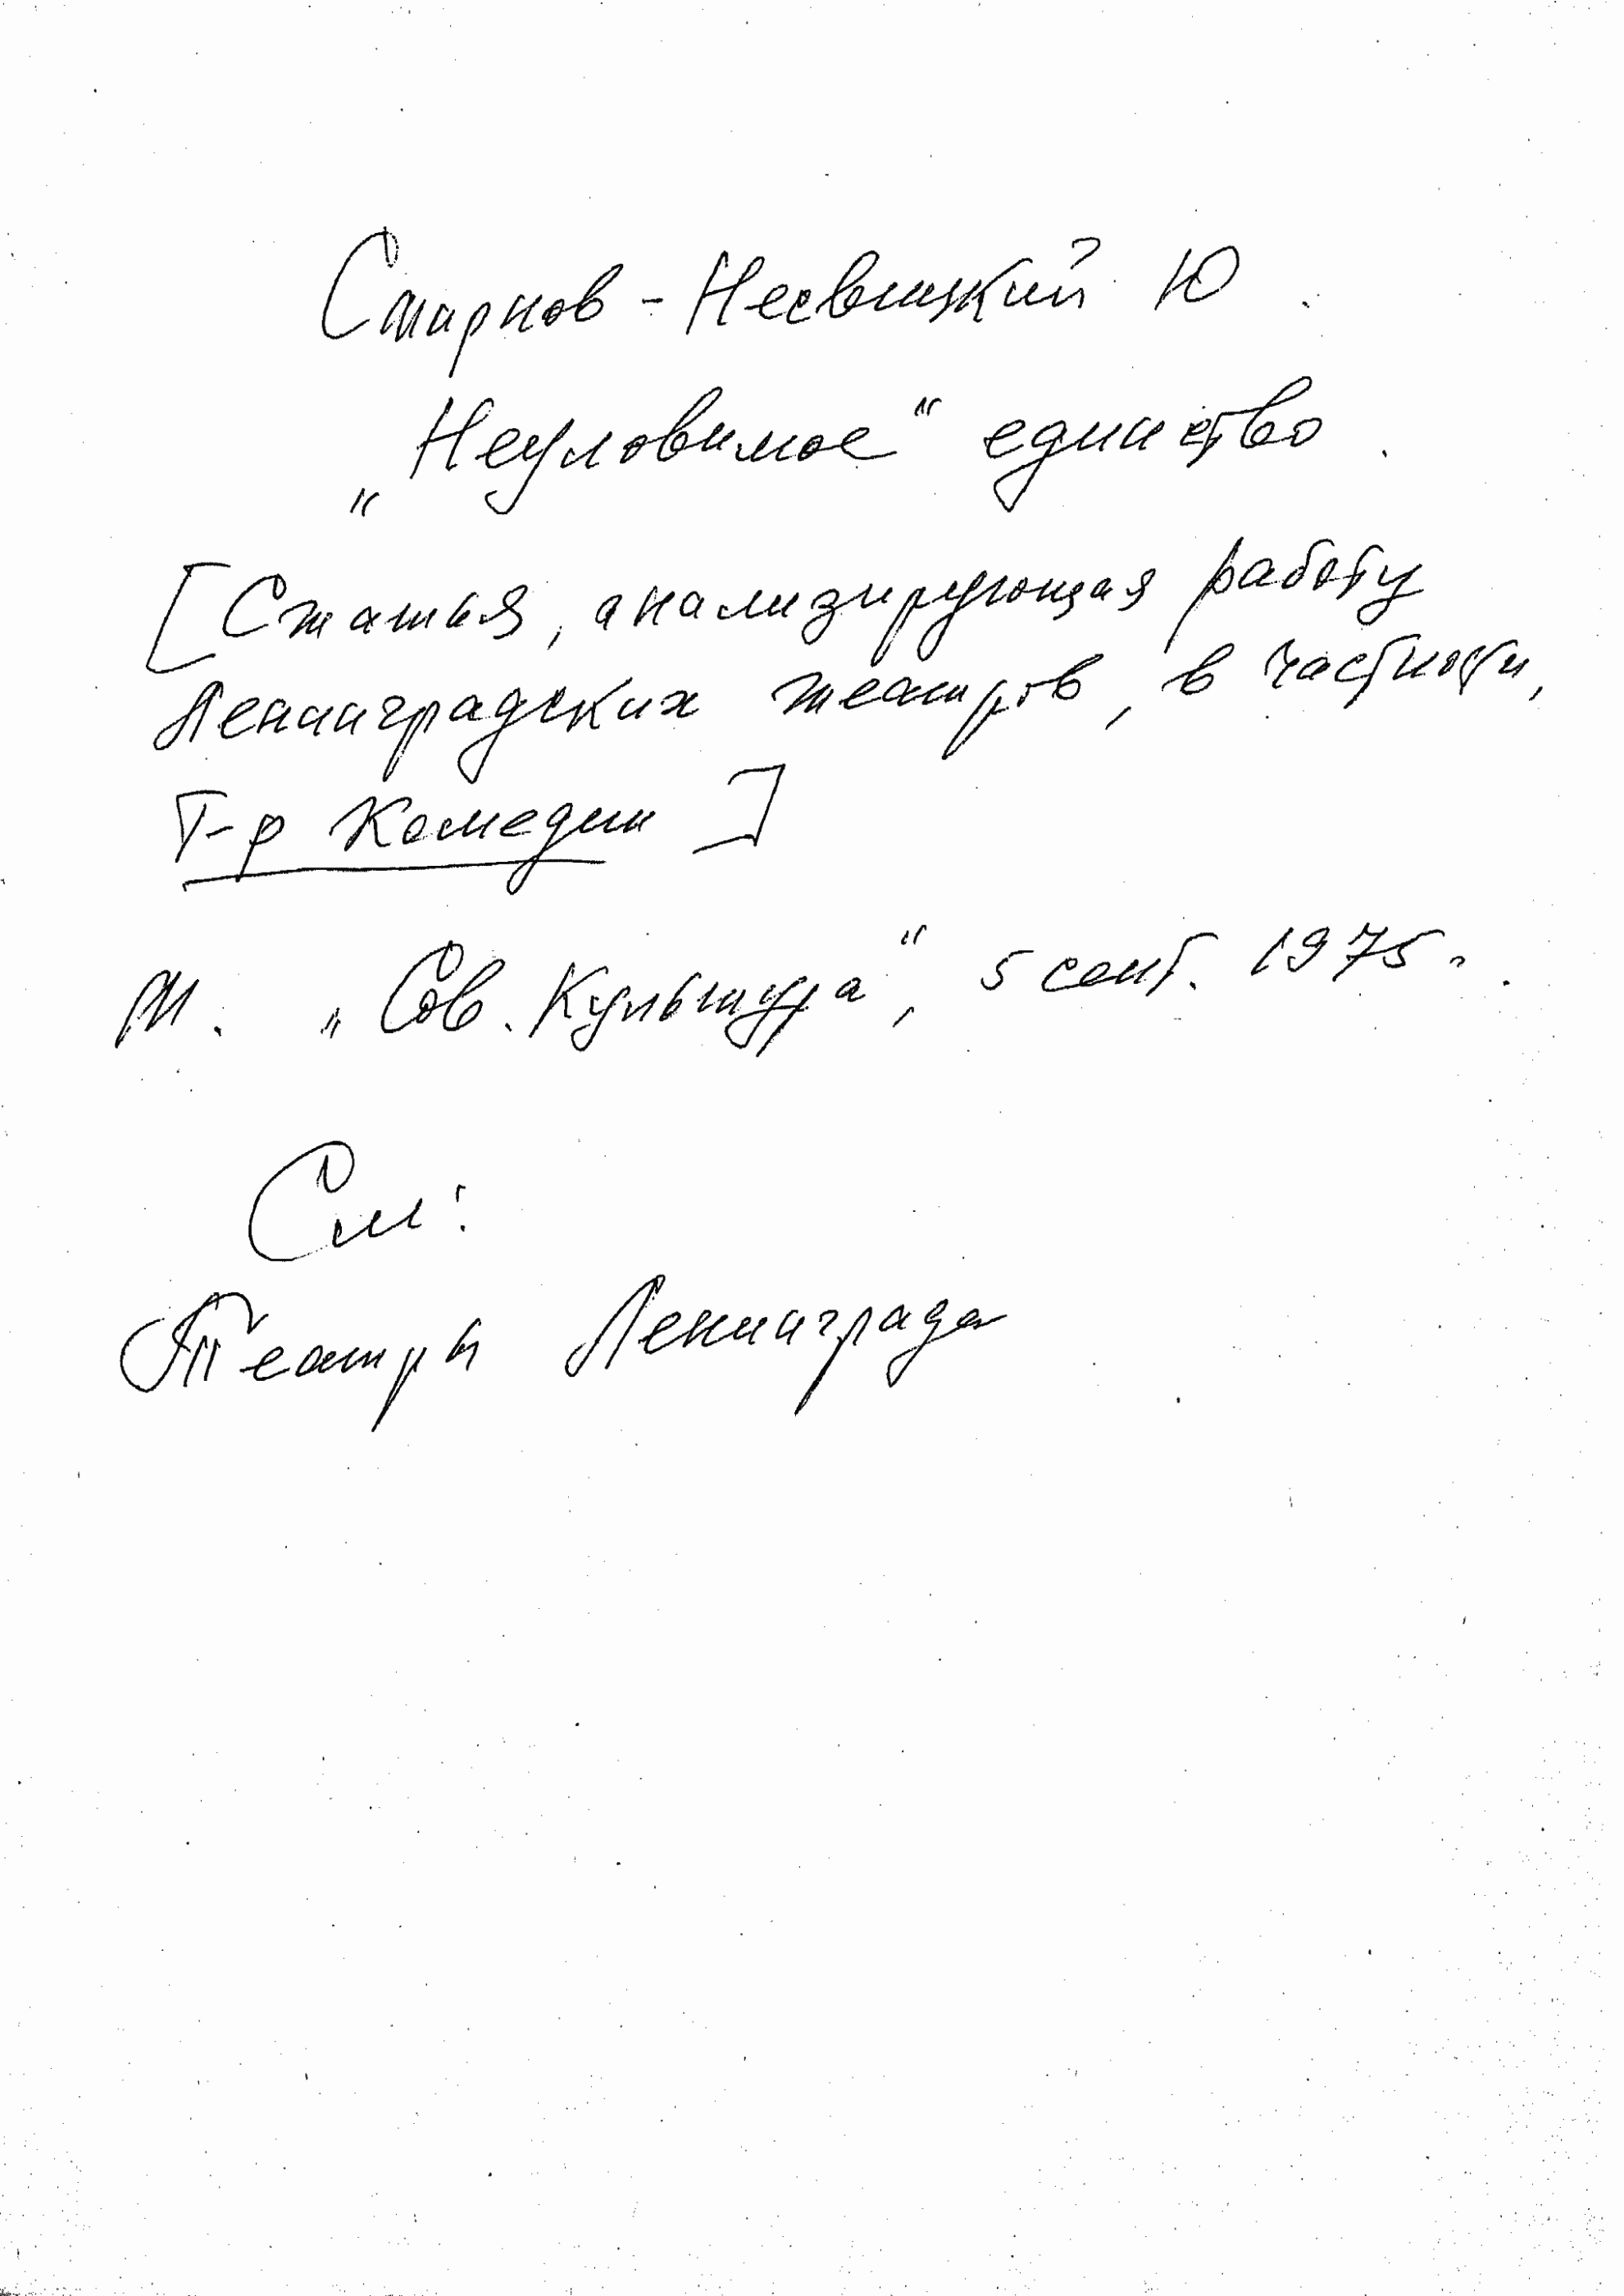 Смирнов-Несвицкий Ю.
„Неуловимое“ единство.
[Статья, анализирующая работу
Ленинградских театров, в частности,
Т-р Комедии]
М. „Сов. Культура“, 5 сент. 1975 г.
См:
Театры Ленинграда